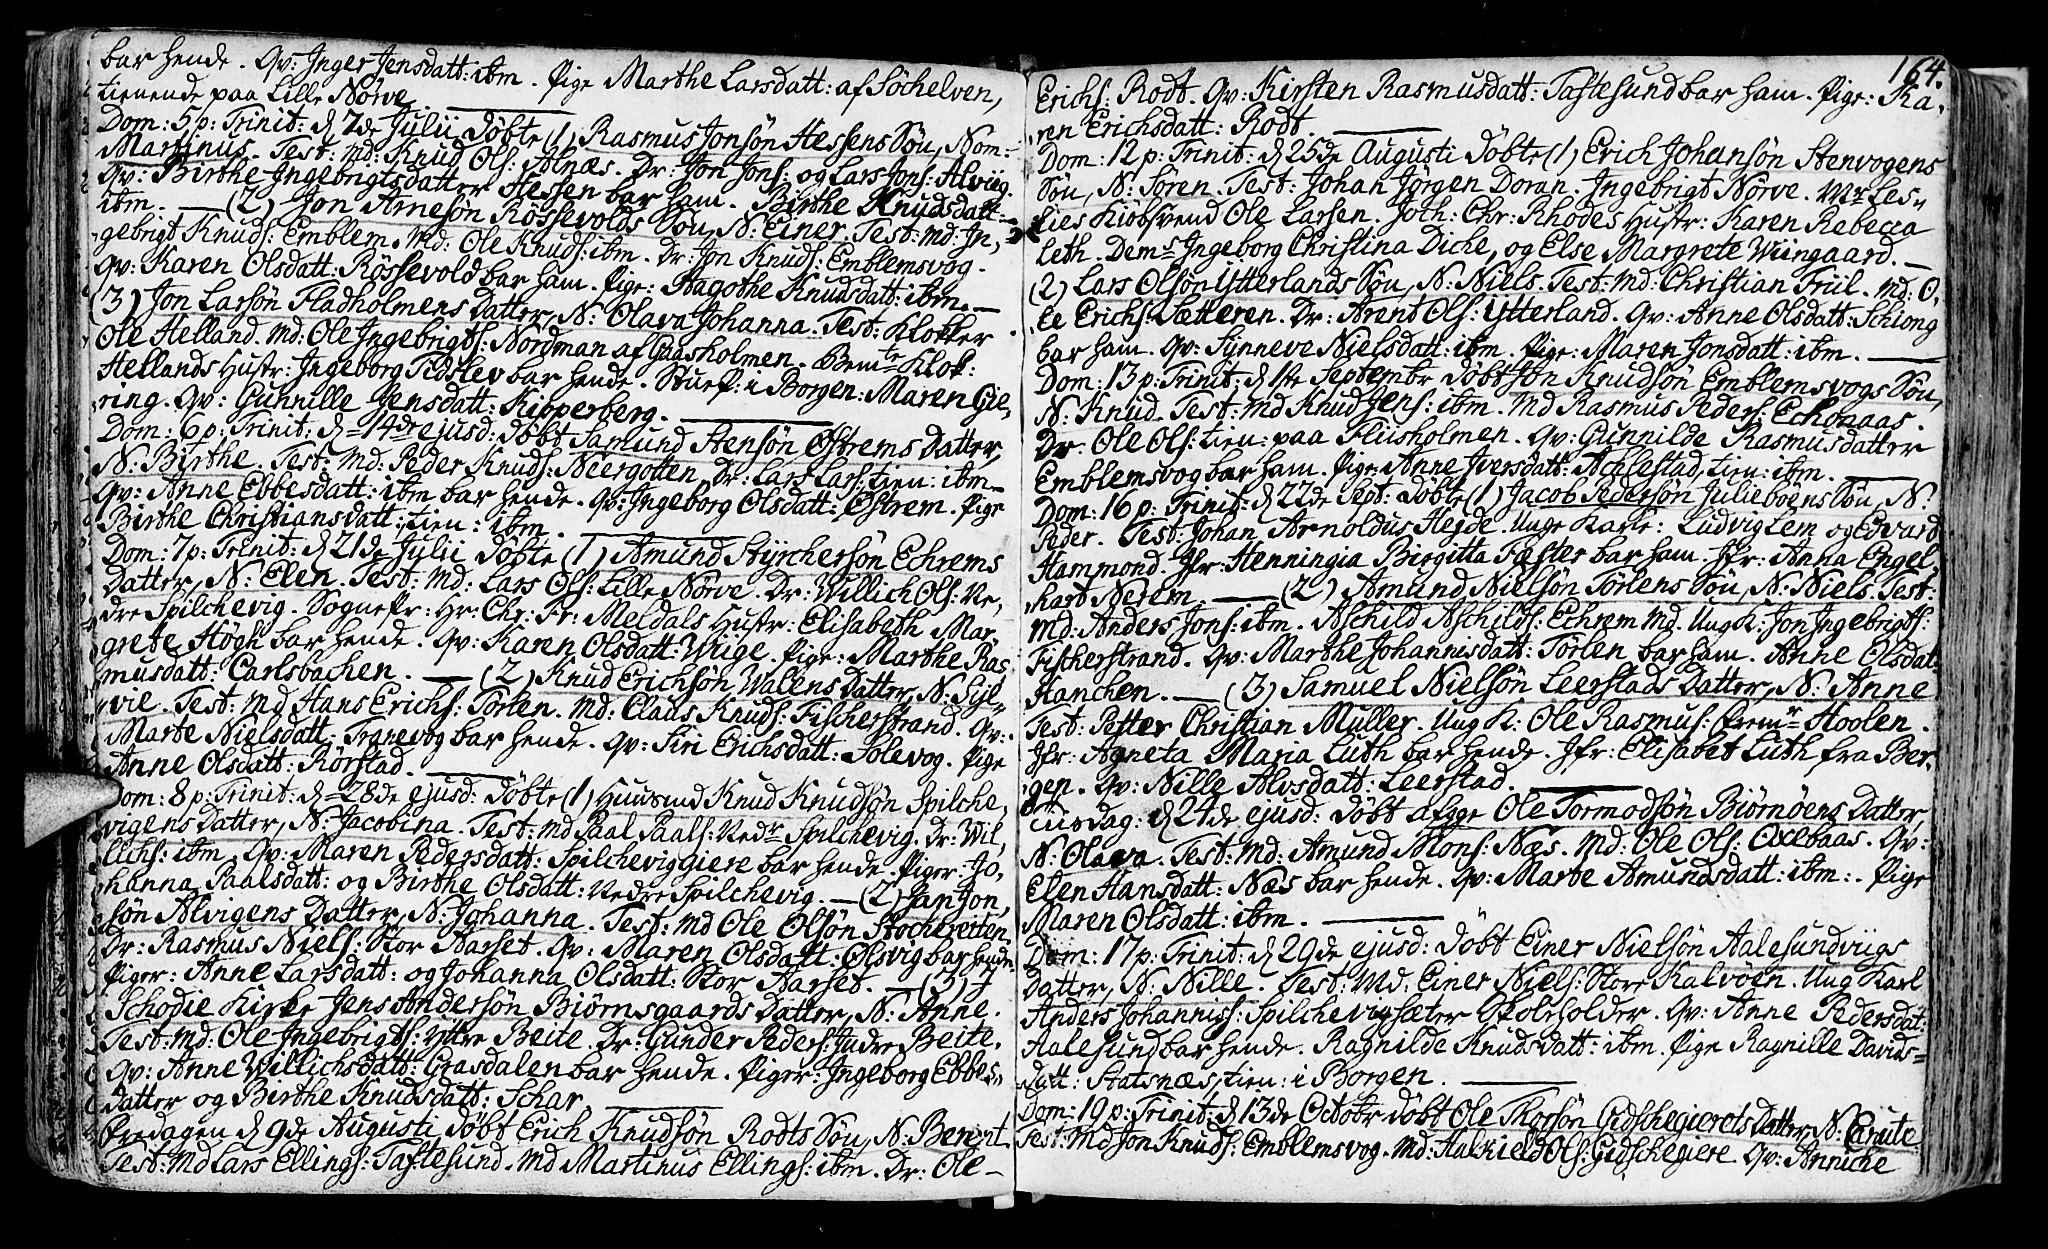 bar hende. Qv: Inger Jensdatt: ibm. Pige Marthe Larsdatt: af Söchelven,
tienende paa Lille Nörve
Dom: 5 p: Trinit: d 7de Julii Döbte (1) Rasmus Jonsön Hessens Sön, Nom:
Martinus. Test: Md: Knud Ols: Alnæs. Dr: Jon Jons: og Lars Jons: Alviig.
Qv: Birthe Ingebrigtsdatter Hessen bar ham. Birthe Knudsdatt:
ibm. — (2) Jon Arnesön Rössevolds Sön, N: Einer. Test: Md: In,
gebrigt Knuds: Emblem. Md: Ole Knuds: ibm. Dr: Jon Knuds: Emblemsvog.
Qv: Karen Olsdatt: Rössevold bar ham. Pige: Aagothe Knudsdatt: ibm. —
(3) Jon Larsön Fladholmens Datter, N: Olava Johanna. Test: Klokker
Ole Helland. Md: Ole Ingebrigts: Nordman af Gaasholmen. Bemte Klok:
Hellands Hustr: Ingeborg Tidslev bar hende. Stuep: i Borgen: Maren Gie,
ring. Qv: Gunnille Jensdatt: Kipperberg.
Dom: 6 p: Trinit: d 14de ejusd: döbt Samund Stensön Östrems Datter,
N: Birthe. Test: Md: Peder Knuds: Neergotten. Dr: Lars Lars: tien: ibm
Qv: Anne Ebbesdatt: ibm bar hende. Qv: Ingeborg Olsdatt: Östrem. Pige
Birthe Christiansdatt: tien: ibm.
Dom: 7 p: Trinit: d 21de Julii Döbte (1) Amund Styrchersön Echrems
Datter, N: Elen. Test: Md: Lars Ols: Lille Nörve. Dr: Willich Ols: Ve,
dre Spilchevig. Sognepr: Hr: Chr: Fr: Meldals Hustr: Elisabeth Mar,
grete Högh bar hende. Qv: Karen Olsdatt: Wiige. Pige: Marthe Ras,
musdatt: Carlsbachen. — (2) Knud Erichsön Walens Datter, N: Syl,
vie. Test: Md Hans Erichs: Törlen. Md: Claus Knuds: Fischerstrand. Qv:
Marte Nielsdatt: Tranevog bar hende. Qv: Siri Erichsdatt: Solevog. Pige
Anne Olsdatt: Rörstad.
Dom: 8 p: Trinit: d 28de ejusd: Döbte (1) Huusmd Knud Knudsön Spilche,
vigens Datter, N: Jacobina. Test: Md Paal Paals: Vedr Spilchevig. Dr: Wil,
lichs: ibm. Qv: Maren Pedersdatt: Spilcheviggiere bar hende. Piger: Jo,
hanna Paalsdatt: og Birthe Olsdatt: Vedre Spilchevig. — (2) Jan Jon,
sön Alvigens Datter, N: Johanna. Test: Md Ole Olsön Stochretten
Dr: Rasmus Niels: Stor Aarset. Qv: Maren Olsdatt: Olsvig bar hende.
Piger: Anne Larsdatt: og Johanna Olsdatt: Stor Aarset. — (3) I
Schodie Kirke Jens Andersön Biörnsgaards Datter, N: Anne.
Test: Md: Ole Ingebrigts: Yttre Beite. Dr: Gunder Peders: Indre Beite.
Qv: Anne Willichsdatt: Grasdalen bar hende. Piger: Ingeborg Ebbes,
datter og Birthe Knudsdatt: Schar
Fredagen d 9de Augusti döbt Erich Knudsön Rodts Sön, N: Bernt.
Test: Md Lars Ellings: Taftesund. Md Martinus Ellings: ibm. Dr: Ole
164.
Erichs: Rodt. Qv: Kirsten Rasmusdatt: Taftesund bar ham. Pige: Ka,
ren Erichsdatt: Rodt.
Dom: 12 p: Trinit: d 25de Augusti Döbte (1) Erich Johansön Stenvogens
Sön, N: Sören. Test: Johan Jörgen Doran. Ingebrigt Nörve. Mr Les,
lies Kiöbsvend Ole Larsen. Joth: Chr: Rhodes Hustr: Karen Rebecca
Leth. Demr Ingeborg Christina Diche, og Else Margrete Wiingaard. —
(2) Lars Olsön Ytterlands Sön, N: Niels. Test: Md: Christian Friil. Md: O,
le Erichs: Sætteren. Dr: Arent Ols: Ytterland. Qv: Anne Olsdatt: Schiong
bar ham. Qv: Synneve Nielsdatt: ibm. Pige: Maren Jonsdatt: ibm. —
Dom: 13 p: Trinit: d 1ste Septembr döbt Jon Knudsön Emblemsvogs Sön,
N: Knud. Test: Md Knud Jens: ibm. Md Rasmus Peders: Echonaas.
Dr: Ole Ols: tien: paa Fliisholmen. Qv: Gunnilde Rasmusdatter
Emblemsvog bar ham. Pige: Anne Iversdatt: Achlestad, tien: ibm.
Dom: 16 p: Trinit: d 22de Sept: Döbte (1) Jacob Pedersön Julieboens Sön, N:
Peder. Test: Johan Arnoldus Hejde. Unge Karle: Ludvig Lem og Edvard
Hammond. Jfr: Henningia Birgitta Fæster bar ham. Jfr: Anna Engel,
hart Nedem. — (2) Amund Nielsön Törlens Sön, N: Niels. Test:
Md: Anders Jons: ibm. Aschild Aschilds: Echrem Md. Ung K: Jon Ingebrigts:
Fischerstrand. Qv: Marthe Johannisdatt: Törlen bar ham. Anne Olsdat:
Hanchen. — (3) Samuel Nielsön Leerstads Datter, N: Anne
Test: Petter Christian Muller. Ung K: Ole Rasmus: Premr Hoolen.
Jfr: Agneta Maria Luth bar hende. Jfr: Elisabet Luth fra Ber,
gen. Qv: Nille Alvsdatt: Leerstad.
Tiisdag: d 24de ejusd: döbt afgge Ole Tormodsön Biörnöens Datter,
N: Olava. Test: Md: Amund Mons: Næs. Md: Ole Ols: Oxebaas. Qv:
Elen Hansdatt: Næs bar hende. Qv: Marte Amundsdatt: ibm:. Pige
Maren Olsdatt: ibm.
Dom: 17 p: Trinit: d 29de ejusd: döbt Einer Nielsön Aalesundviigs
Datter, N: Nille. Test: Md: Einer Niels: Store Kalvoen. Ung Karl
Anders Johannis: Spilchevigsæter Skoleholder. Qv: Anne Pedersdat:
Aalesund bar hende. Ragnilde Knudsdatt: ibm. Pige Ragnille Davids,
datt: Statsnæs, tien: i Borgen.
Dom: 19 p: Trinit: d 13de Octobr döbt Ole Thorsön Gidschegierets Datter, N: Eirute
Test: Md Jon Knuds: Emblemsvog. Md: Halkield Ols: Gidschegiere Qv: Anniche